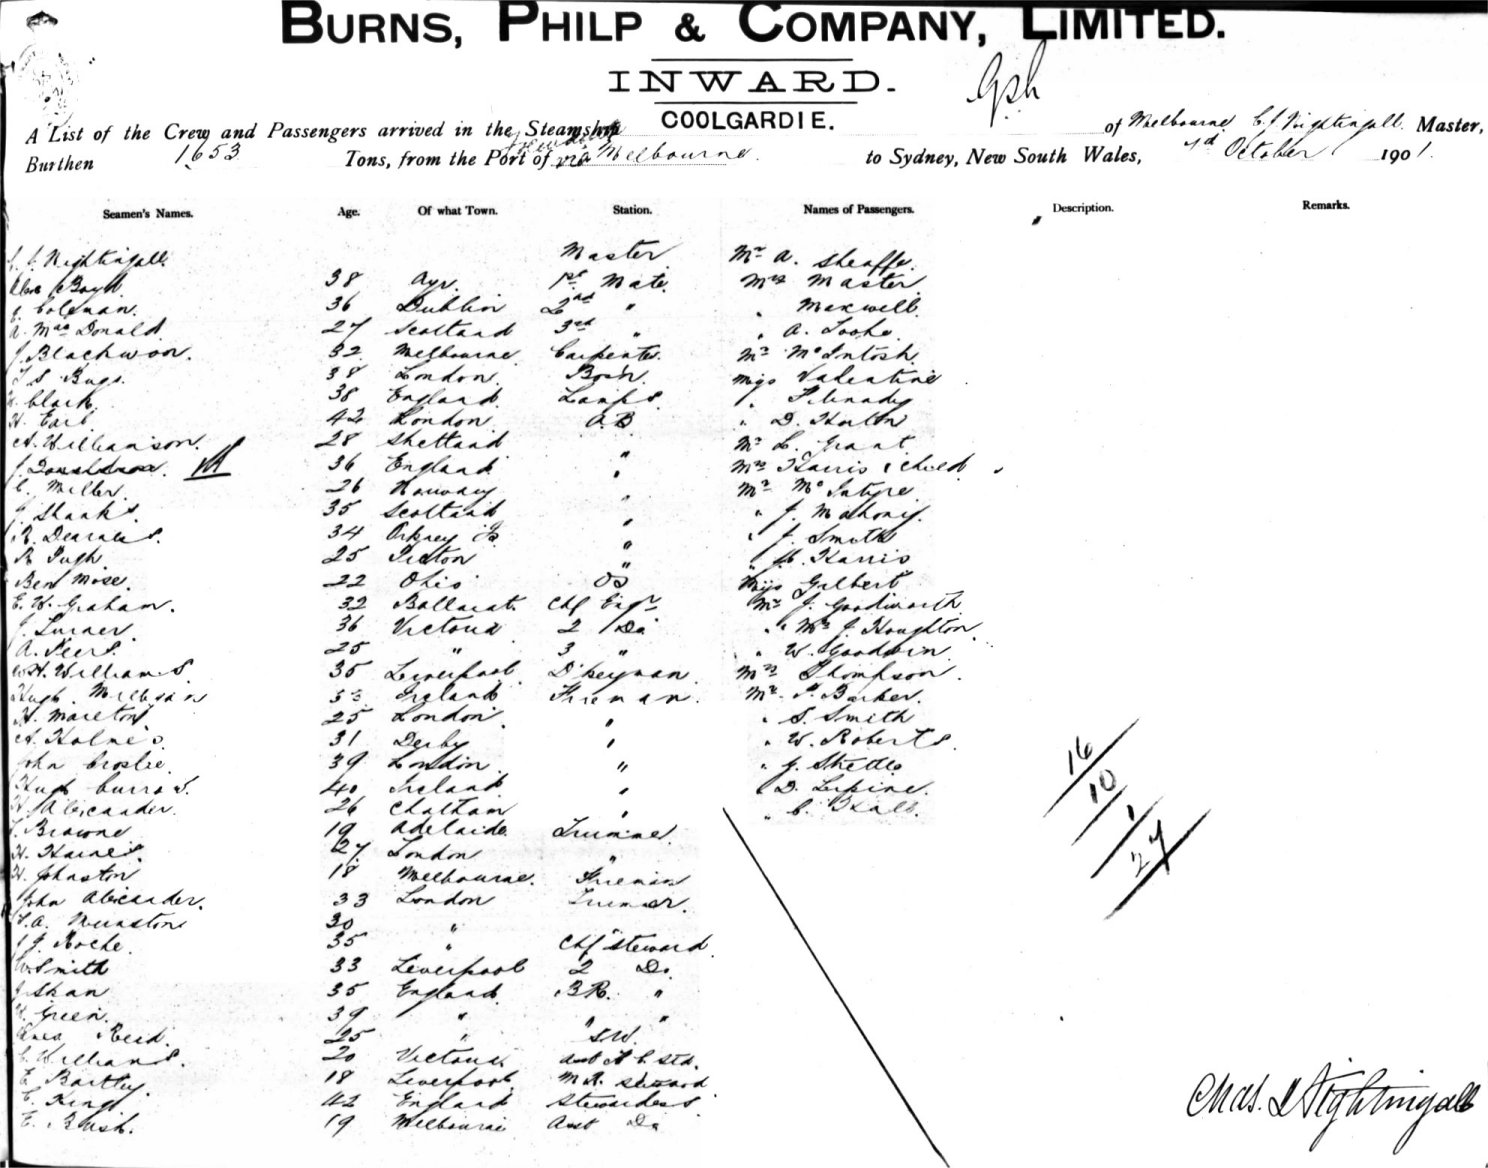 BURNS, PHILP & COMPANY, LIMITED.
INWARD.
COOLGARDIE.
A List of the Crew and Passengers arrived in the Steamship of Melbourne C J Nightingall Master,
Burthen 1653 Tons, from the Port of Fremantle via Melbourne. to Sydney, New South Wales, October 1901.
Seamen's Names. Age. Of what Town. Station. Names of Passengers. Description. Remarks.
Nightingall. Master Mr A.
Boyd 38 Ayr. 1st Mate. Mrs Master
Coleman. 36 Dublin 2nd " " Maxwell
A. MacDonald 27 Scotland 3rd " " A.
J Blackwood. 32 Melbourne Carpenter. Mr McIntosh
38 London. Bosn. Miss Valentine
Clark. 38 England Lamps "
H. Earl. 42 London. AB " D.
A. Williamson. 28 Shetland " Mr L. Grant
J Donaldson. 36 England " Mrs Harris & child
C. Miller. 26 Norway " Mr McIntyre
J. Shanks. 35 Scotland " " J. Mahony.
R. 34 Orkney Is " " J. Smith
R Pugh. 25 Picton " " Harris
Ben Mose. 22 Ohio OS Miss Gilbert
E. H. Graham. 32 Ballarat Chf Engr Mr J. Goodworth
J. Turner. 36 Victoria 2 Do " Mrs J. Houghton
A. Peers. 25 " 3 " " W. Goodwin.
W. H. Williams. 35 Liverpool D'keyman Mrs Thompson.
Hugh Milligan Ireland Fireman. Mr Barker.
H. 25 London " " S. Smith
A. Holmes. 31 Derby " " W. Roberts.
John 39 London " " J.
Hugh Curran. 40 Ireland " " D. Lepine.
H. Alexander. 26 Chatham " " C.
Browne 19 Adelaide Trimmer.
H. Haines. 27 London "
H. Johnston 18 Melbourne. Fireman
John Alexander. 33 London Trimmer.
30 "
J. Roche. 35 " Chf steward
W Smith 33 Liverpool 2 Do.
J Shan 35 England BR. "
Green. 39 " " "
Reid. 25 " S.W.
C. Williams. 20 Victoria
E Bartley. 18 Liverpool M.R. Steward
C. King 42 England Stewardess.
E. 19 Melbourne Asst Do
16
10
1
27
Chas. J Nightingall